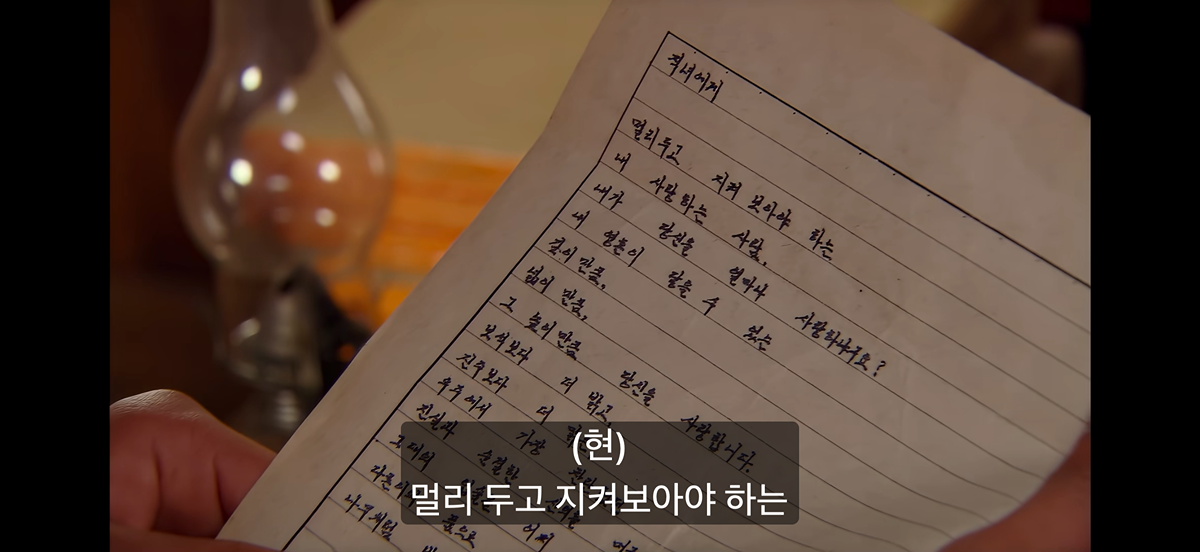 직녀에게
멀리두고 지켜 보아야 하는
내 사랑하는 사람,
내가 당신을 얼마나 사랑하냐구요?
내 영혼이 닿을 수 있는
깊이 만큼,
넓이 만큼,
그 높이만큼 당신을 사랑합니다.
보석보다 더 맑고,
진주보다 더
우주에서 가장
진실과 순결한
그대의
나무처럼
(현)
멀리 두고 지켜보아야 하는